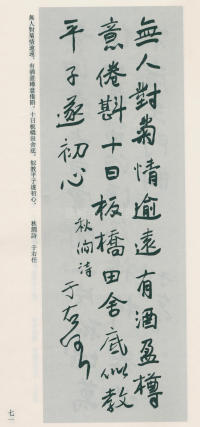 無人對菊情逾遠有酒盈樽
意倦斟十日板橋田舍底似教
平子遂初心
秋澗詩 于右任
無人對菊情逾遠，有酒盈樽意倦斟，十日板橋田舍底，似教平子遂初心。
秋澗詩 于右任
七一